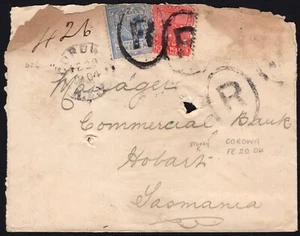 426
R R
R
Manager
Commercial Bank
COROWA
FE 20 04
Hobart
Tasmania